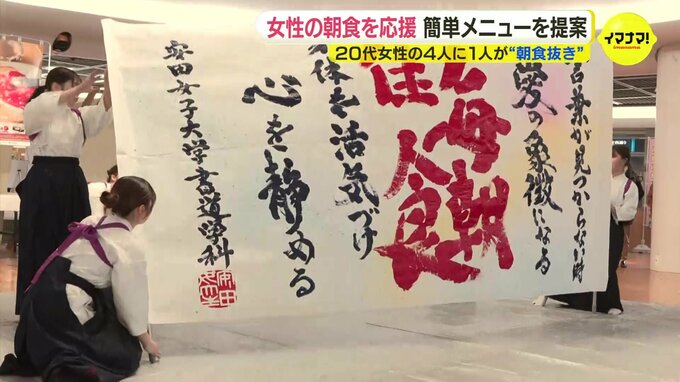 女性の朝食を応援 簡単メニューを提案
20代女性の4人に1人が“朝食抜き”
イマナマ!
imanama
言葉が見つからない時
愛の象徴になる
毎朝
人良
体を活気づけ
心を静める
安田女子大学書道学科